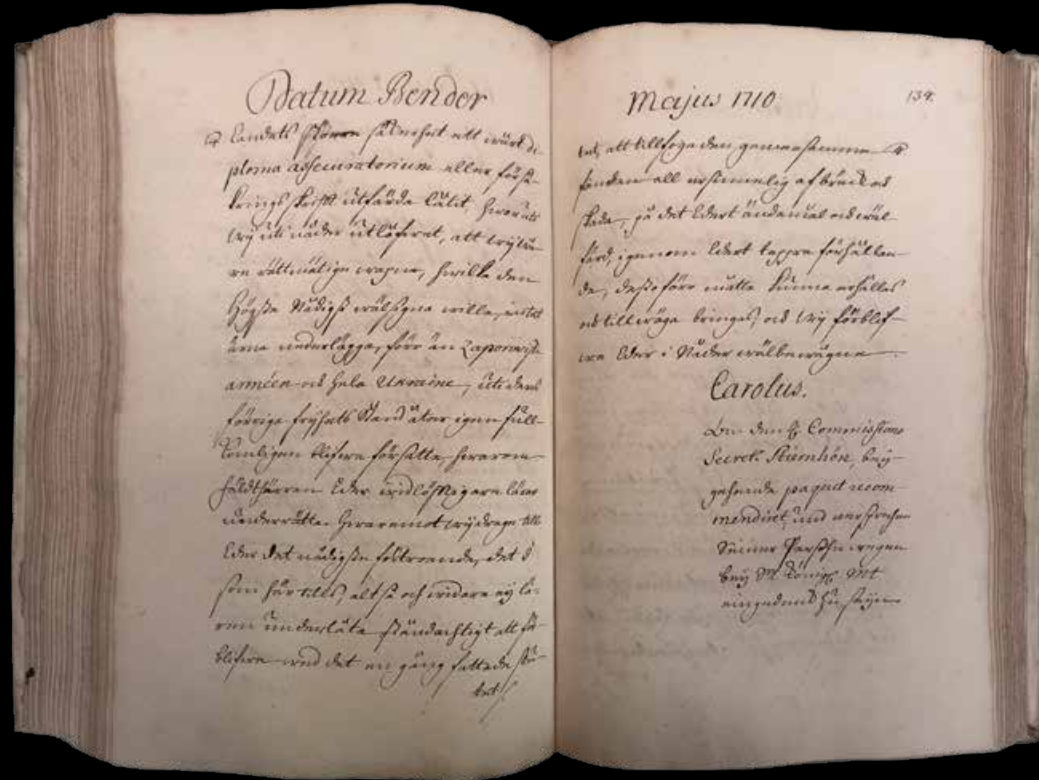 Datum Bender
Landets så wähl ett wårt di-
ploma assecuratorium eller försä-
krings skrifft utfärda låtit, hwarutj
wij uti nåder utläfwat, att wij wå-
re rättmätige wapne, hwilka den
Högste Nådigst wälsigna wille, intet
nederläggia, förr än Zaporowisk.
arméen och hela Ukraine, uti dess
förrige frijheets Stånd igen full-
komligen blifwa försatte, hwarom
fäldtherren Eder widlöfftigare låter
underrätta. Hwaremot wij drage till
Eder det nådigste förtroende, det I
som här tills, altså och widare eij lä-
ren underlåta ståndachtigt att för-
blifwa wed det en gång fattade
Majus 1710
134.
att tillfoga den gemensamme
fienden all afbräck och
skada, på det Edert ändamåhl och wäl-
färd, igenom Edert tappre förhållan-
de, desto förr måtte kunna erhålles
och tillwäga bringas, och wij förblif-
wa Eder i Nåder wälbewågne.
Carolus.
Commissions
Secret. beij-
gehende paquet recom-
mendiret, und
Seiner Persohn wegen
beij Sr Königl. Mt
eingedenck zu seijn